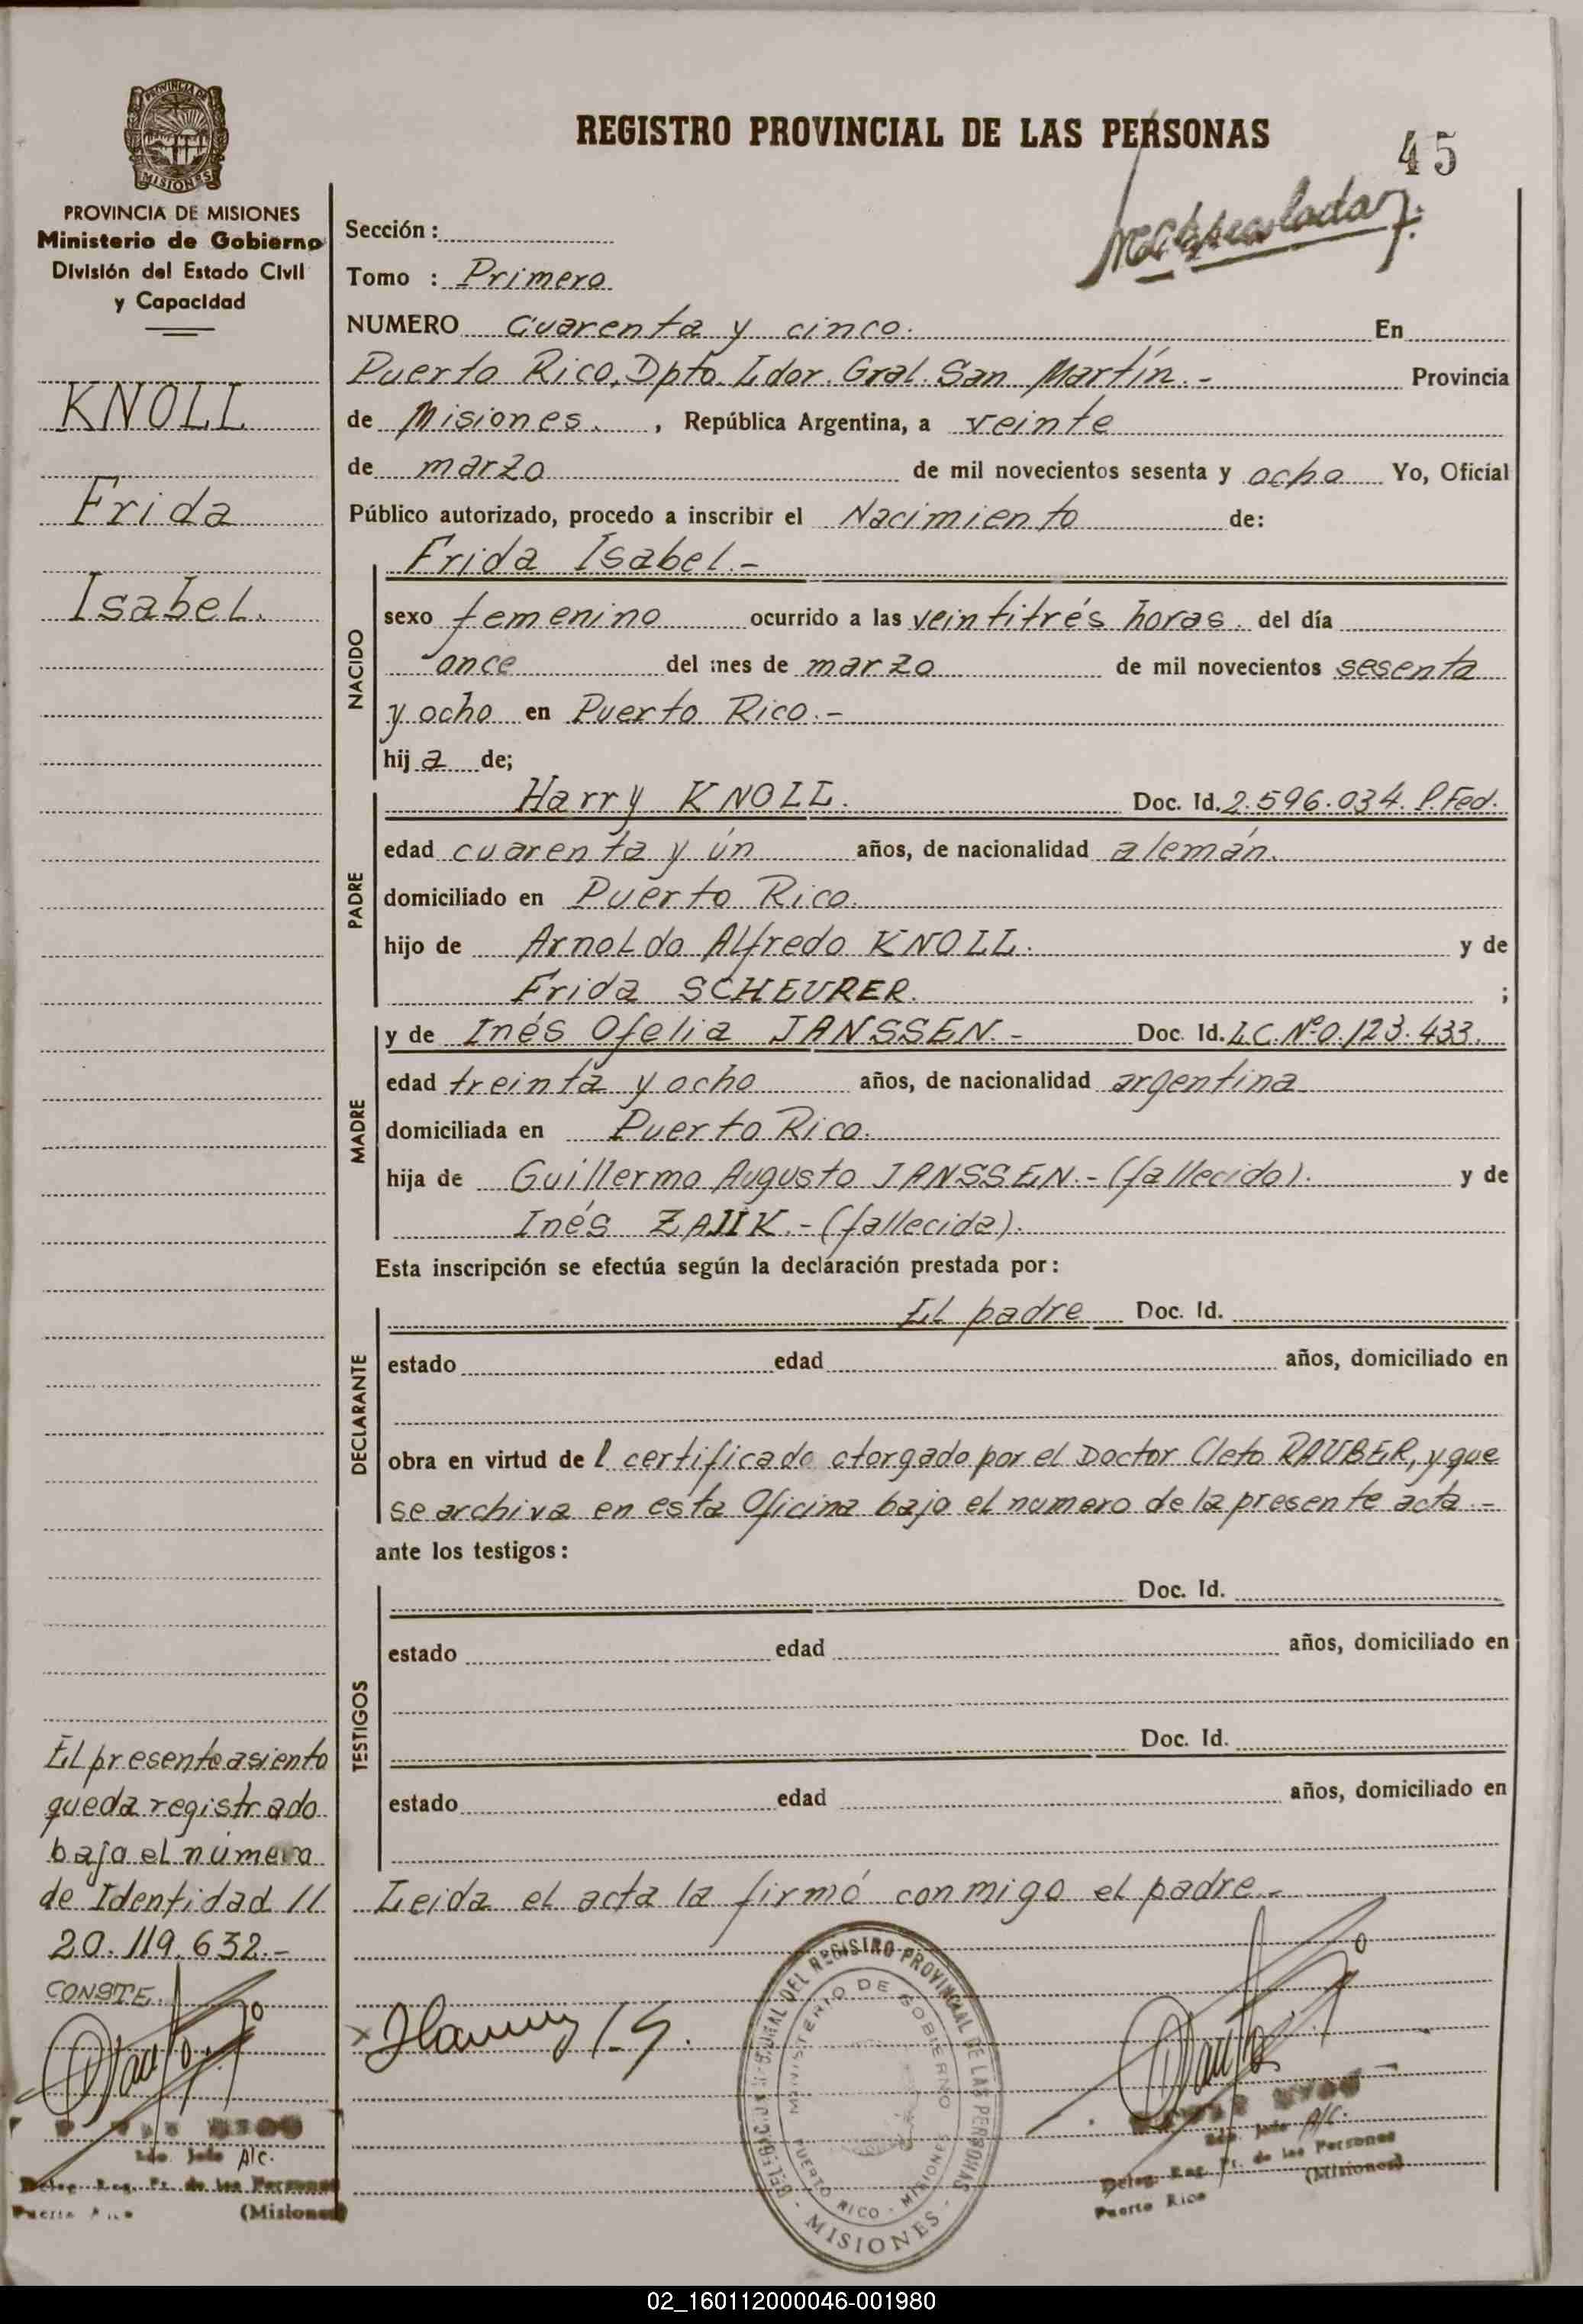 REGISTRO PROVINCIAL DE LAS PERSONAS
45
PROVINCIA DE MISIONES
MISIONES
PROVINCIA DE MISIONES
Ministerio de Gobierno
División del Estado Civil
y Capacidad
KNOLL
Frida
Isabel.
El presente asiento
queda registrado
bajo el número
de Identidad 11
20.119.632.-
CONSTE.
A/C.
Deleg. Reg. Pr. de las Personas
Puerto Rico (Misiones)
Sección :
Tomo : Primero
NUMERO Cuarenta y cinco. En
Puerto Rico, Dpto. Ldor. Gral. San Martín.- Provincia
de Misiones. , República Argentina, a veinte
de marzo de mil novecientos sesenta y ocho Yo, Oficial
Público autorizado, procedo a inscribir el Nacimiento de:
NACIDO
Frida Isabel.-
sexo femenino ocurrido a las veintitrés horas. del día
once del mes de marzo de mil novecientos sesenta
y ocho en Puerto Rico.-
hij a de;
PADRE
Harry KNOLL. Doc. Id. 2.596.034. P. Fed.
edad cuarenta y ún años, de nacionalidad alemán.
domiciliado en Puerto Rico.
hijo de Arnoldo Alfredo KNOLL. y de
Frida SCHEURER. ;
MADRE
y de Inés Ofelia JANSSEN.- Doc. Id. L.C. Nº 0.123.433.
edad treinta y ocho años, de nacionalidad argentina
domiciliada en Puerto Rico.
hija de Guillermo Augusto JANSSEN.- (fallecido). y de
Inés (fallecida).
Esta inscripción se efectúa según la declaración prestada por :
DECLARANTE
El padre Doc. Id.
estado edad años, domiciliado en
obra en virtud de l certificado otorgado por el Doctor Cleto RAUBER, y que
se archiva en esta Oficina bajo el numero de la presente acta.-
ante los testigos :
TESTIGOS
Doc. Id.
estado edad años, domiciliado en
Doc. Id.
estado edad años, domiciliado en
Leida el acta la firmó conmigo el padre.-
DEL REGISTRO PROVINCIAL DE LAS PERSONAS
MINISTERIO DE GOBIERNO
PUERTO RICO - MISIONES
- MISIONES -
A/C.
Deleg. Reg. Pr. de las Personas
Puerto Rico (Misiones)
02_160112000046-001980